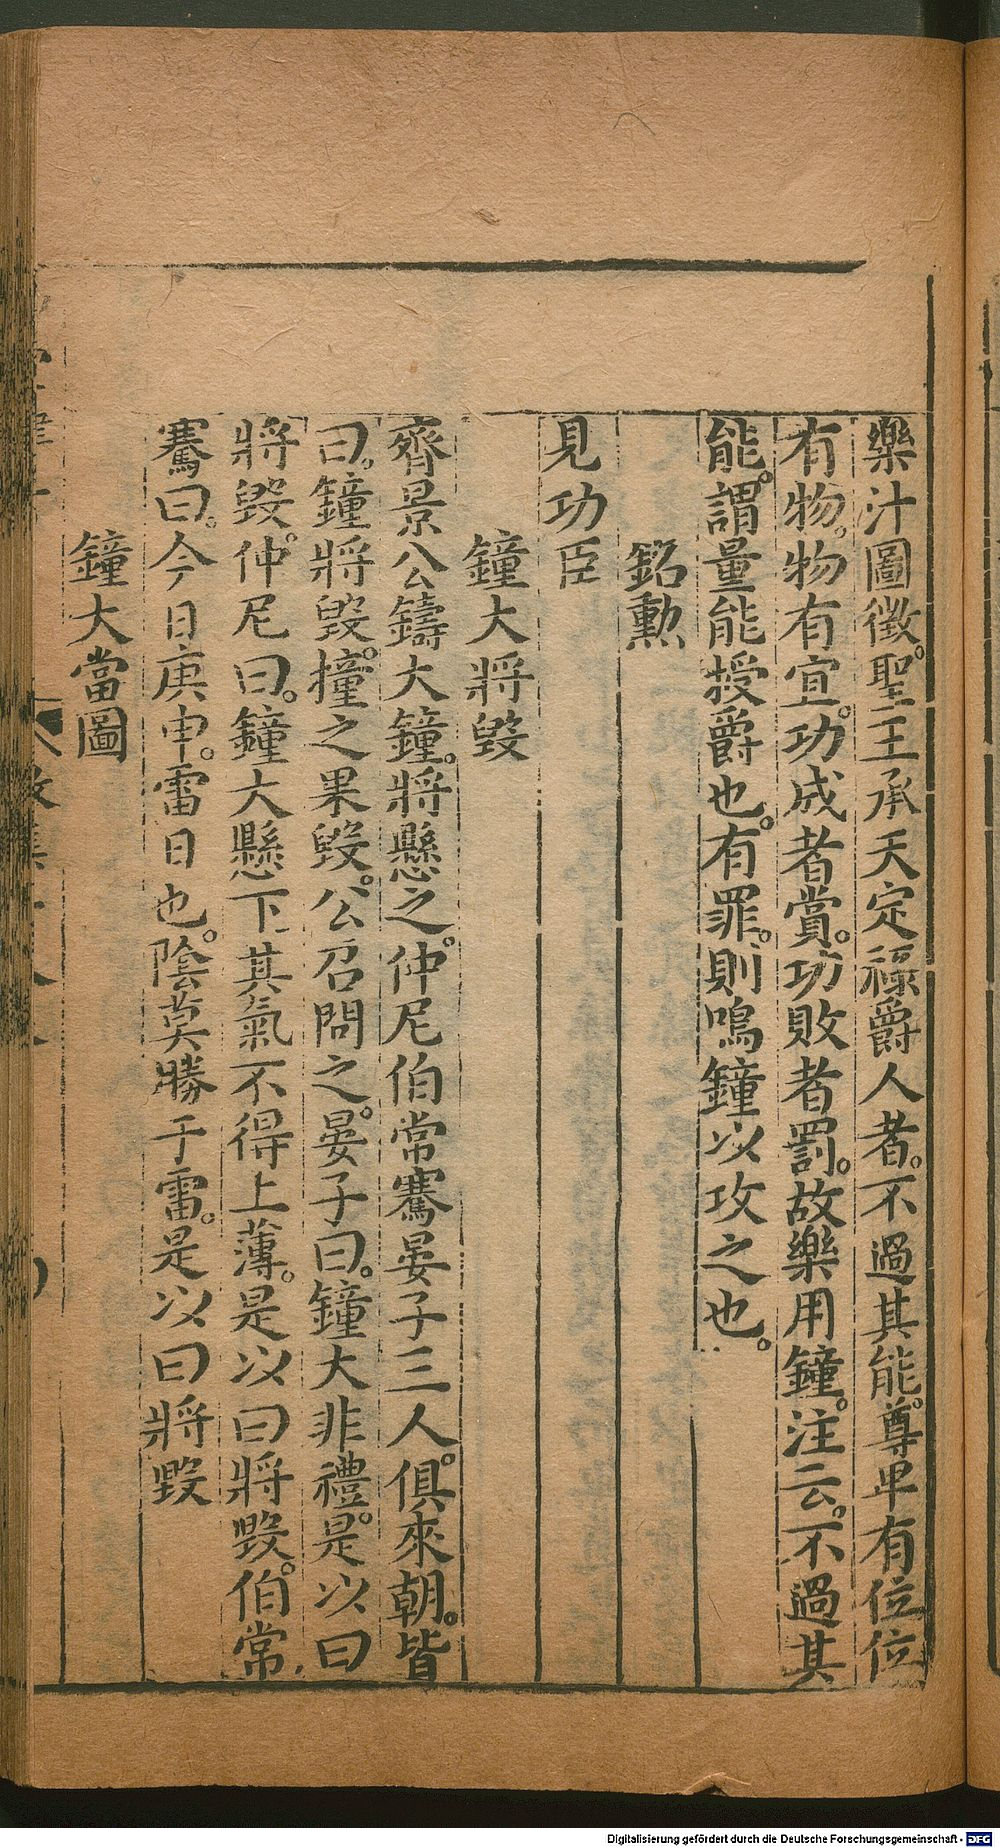 樂汁圖徵。聖王承天定祿爵人者。不過其能。尊卑有位位
有物。物有宜。功成者賞。功敗者罰。故樂用鐘。注云。不過其
能。謂量能授爵也。有罪。則鳴鐘以攻之也。
銘勲
見功臣
鐘大將毀
齊景公鑄大鐘。將懸之。仲尼伯常騫晏子三人。俱來朝。皆
曰。鐘將毀。撞之果毀。公召問之。晏子曰。鐘大非禮。是以曰
將毀。仲尼曰。鐘大懸下。其氣不得上薄。是以曰將毀。伯常
騫曰。今日庚申。雷日也。陰莫勝于雷。是以曰將毀
鐘大當圖
Digitalisierung gefördert durch die Deutsche Forschungsgemeinschaft - DFG